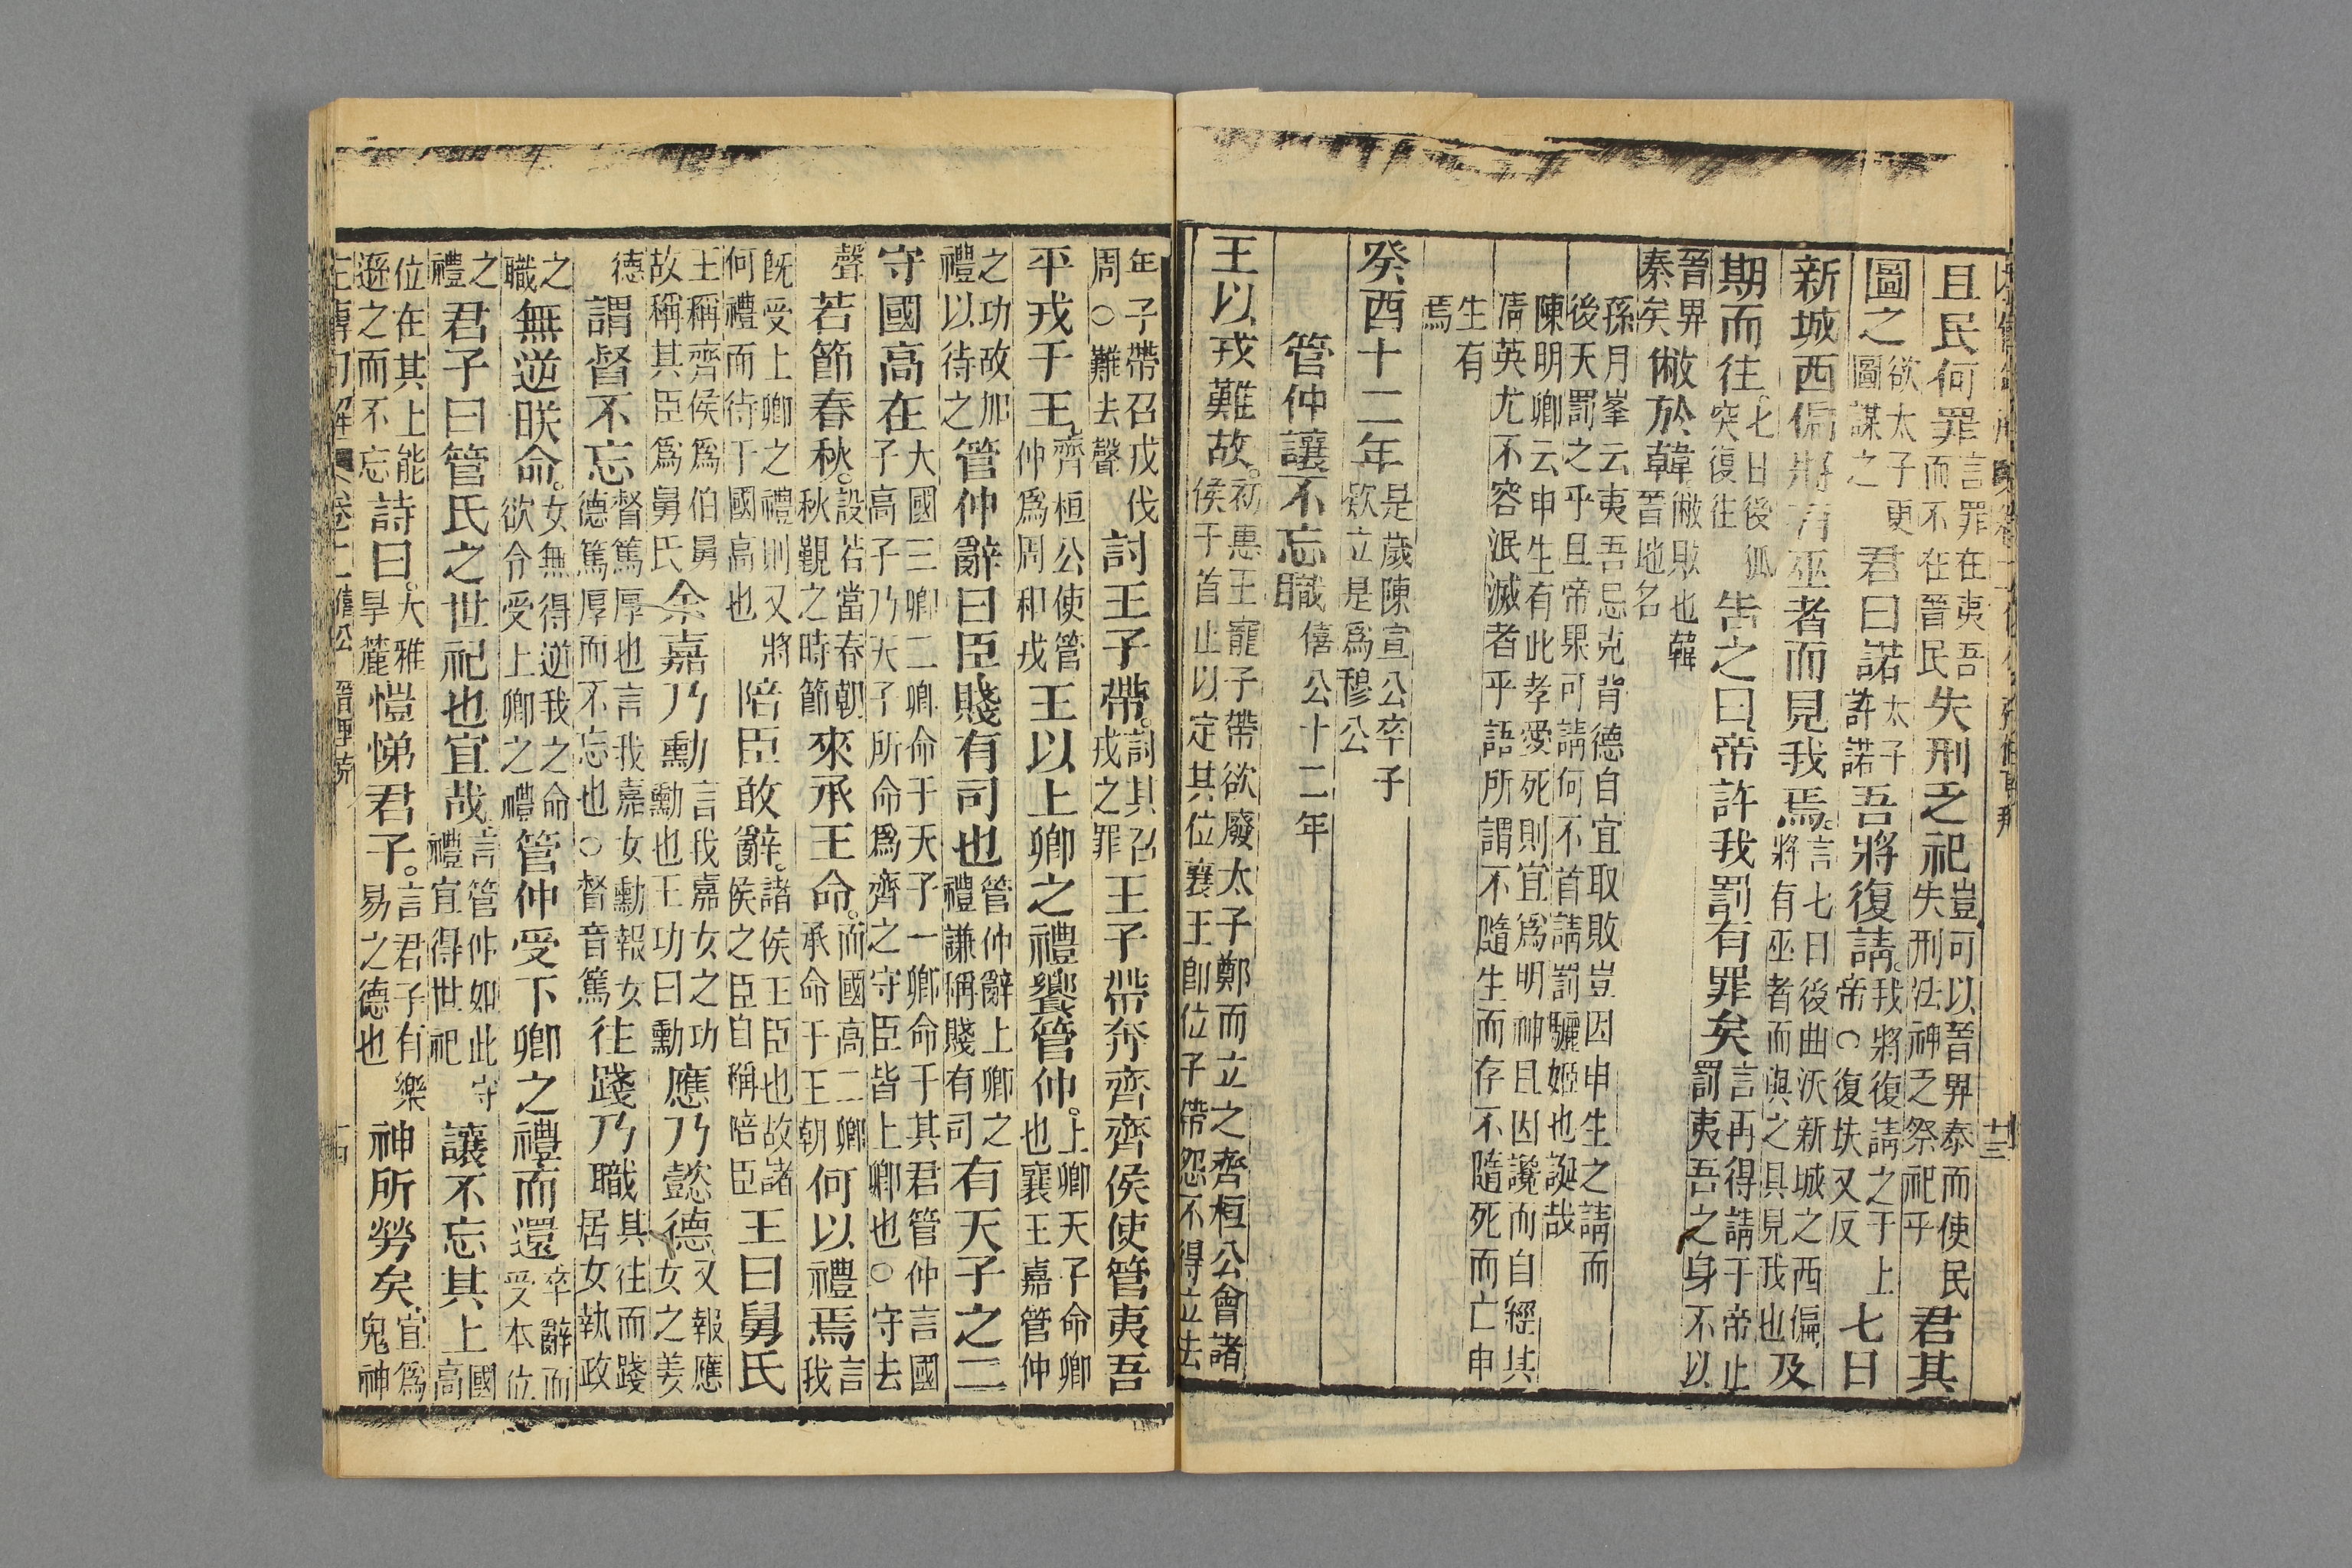 且民何罪言罪在夷吾而不在晉民失刑之祀豈可以晉畀秦而使民失刑法神之祭祀乎君其
圖之欲太子更圖謀之君曰諾太子許諾吾將復請我將復請之于上帝○復扶又反七日
新城西偏將有巫者而見我焉言七日後曲沃新城之西偏將有巫者而與之具見我也及
期而往七日後狐突復往告之曰帝許我罰有罪矣言再得請于帝止罰夷吾之身不以
晉畀秦矣敝於韓敝敗也韓晉地名
孫月峯云夷吾忌克背德自宜取敗豈因申生之請而
後天罰之乎且帝果可請何不首請罰驪姬也誕哉
陳明卿云申生有此孝愛死則宜爲明神且因讒而自經其
淸英尤不容泯滅者乎語所謂不隨生而存不隨死而亡申
生有
焉
癸酉十二年是歲陳宣公卒子欵立是爲穆公
管仲讓不忘職僖公十二年
王以戎難故初惠王寵子帶欲廢太子鄭而立之齊桓公會諸侯于首止以定其位襄王卽位子帶怨不得立去
年子帶召戎伐周○難去聲討王子帶討其召戎之罪王子帶奔齊齊侯使管夷吾
平戎于王齊桓公使管仲爲周和戎王以上卿之禮饗管仲上卿天子命卿也襄王嘉管仲
之功故加禮以待之管仲辭曰臣賤有司也管仲辭上卿之禮謙稱賤有司有天子之二
守國高在大國三卿二卿命于天子一卿命于其君管仲言國子高子乃天子所命爲齊之守臣皆上卿也○守去
聲若節春秋設若當春朝秋覲之時節來承王命而國高二卿承命于王朝何以禮焉言我
旣受上卿之禮則又將何禮而待于國高也陪臣敢辭諸侯王臣也故諸侯之臣自稱陪臣王曰舅氏
王稱齊侯爲伯舅故稱其臣爲舅氏余嘉乃勳言我嘉女之功勳也王功曰勳應乃懿德又報應女之美
德謂督不忘督篤厚也言我嘉女勳報女德篤厚而不忘也○督音篤往踐乃職其往而踐居女執政
之職無逆朕命女無得逆我之命欲令受上卿之禮管仲受下卿之禮而還卒辭而受本位
之禮君子曰管氏之世祀也宜哉言管仲如此守禮宜得世祀讓不忘其上國高
位在其上能遜之而不忘詩曰大雅旱麓愷悌君子言君子有樂易之德也神所勞矣宜爲鬼神